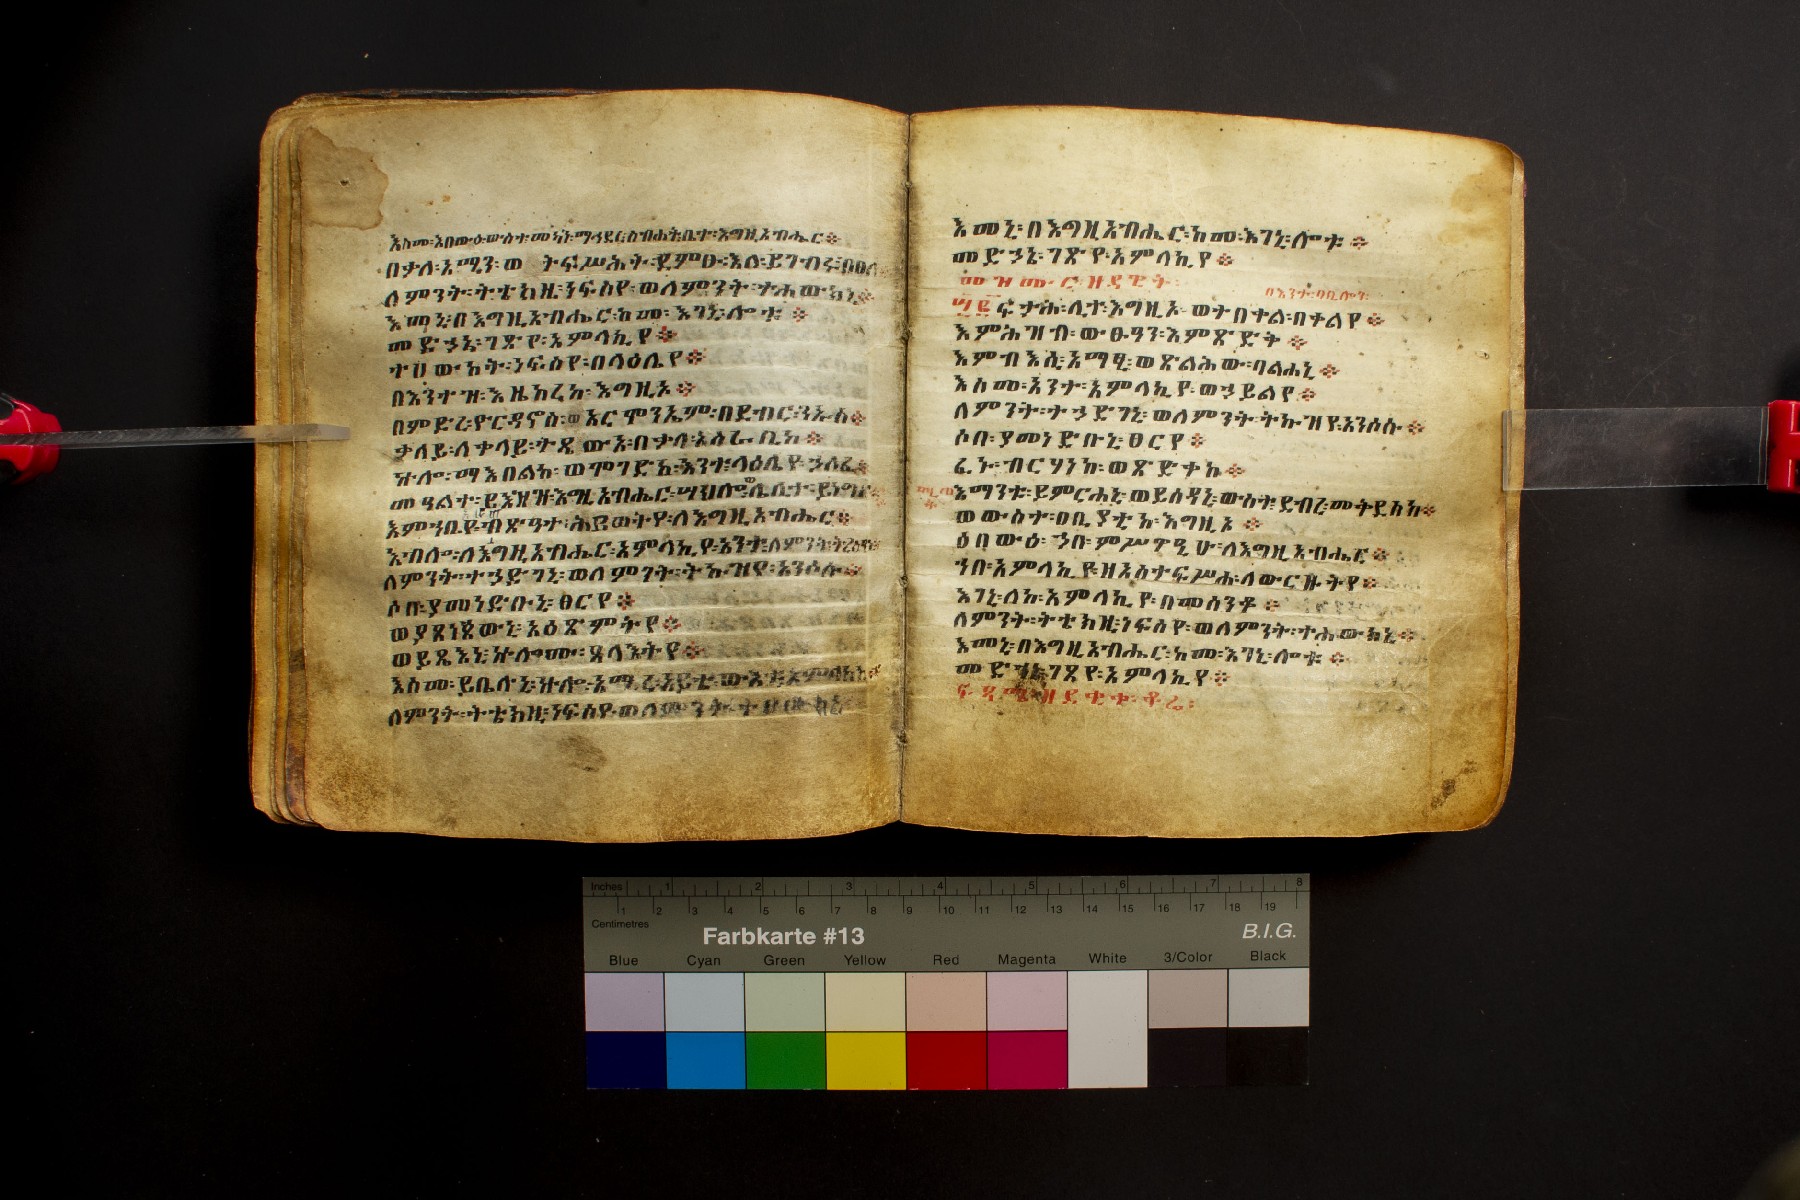 እስመ፡እበውእ፡ውስተ፡መካነ፡ማኅደር፡ስብሐት፡ቤተ፡እግዚአብሔር፨
በቃለ፡አሚን፡ወ ትፍሥሕት፡ደምፁ፡እለ፡ይገብሩ፡በዐለ
ለምንት፡ትቴክዚ፡ነፍስየ፡ወለምንት፡ተሐውክኒ፨
እመኒ፡በእግዚአብሔር፡ከመ፡እገኒ፡ሎቱ፨
መድኃኔ፡ገጽየ፡አምላኪየ፨
ተሀውከት፡ነፍስየ፡በላዕሌየ፨
በእንተዝ፡እዜከረከ፡እግዚኦ፨
በምድረ፡ዮርዳኖስ፡ወአርሞንኤም፡በደብር፡ንኡስ፨
ቃላይ፡ለቀላይ፡ትጼውእ፡በቃለ፡አስራቢከ፨
ኵሎ፡ማእበልከ፡ወሞገድከ፡እንተ፡ላዕሌየ፡ኃለፈ፨
መዓልተ፡ይኤዝዝ፡እግዚአብሔር፡ሣህሎ፡ወሌሊተ፡ይነግር፨
እምኀቤየ፡ብፅዓተ፡ሕይወትየ፡ለእግዚአብሔር፨
እብሎ፡ለእግዚአብሔር፡አምላኪየ፡አንተ፡ለምንት፡ትረስዐኒ፨
ለምንት፡ተኃድገኒ፡ወለምንት፡ትኩዝየ፡አንሶሱ፨
ሶበ፡ያመነድቡኒ፡ፀርየ፨
ወያጸነጽውኒ፡አዕጽምትየ፨
ወይጼእኑኒ፡ኵሎሙ፡ጸላእትየ፨
እስመ፡ይቤሉኒ፡ኵሎ፡አሚረ፡አይቴ፡ውእቱ፡አምላክከ፨
ለምንት፡ትቴክዚ፡ነፍስየ፡ወለምንት፡ተሀውክኒ
እመኒ፡በእግዚአብሔር፡ከመ፡እገኒ፡ሎቱ፨
መድኃኔ፡ገጽየ፡አምላኪየ፨
መዝሙር፡ዘዳዊት፡
በእንተ፡ባቢሎን፡
፵፪ፍታሕ፡ሊተ፡እግዚኦ፡ወትበቀል፡በቀልየ፨
እምሕዝብ፡ውፁዓን፡እምጽድቅ፨
እምብእሲ፡አማፂ፡ወጽልሕው፡ባልሐኒ፨
እስመ፡አንተ፡አምላኪየ፡ወኃይልየ፨
ለምንት፡ተኃድገኒ፡ወለምንት፡ትኩዝየ፡አንሶሱ፨
ሶበ፡ያመነድቡኒ፡ፀርየ፨
ፈኑ፡ብርሃነከ፡ወጽድቀከ፨
እማንቱ፡ይምርሐኒ፡ወይሰዳኒ፡ውስተ፡ደብረ፡መቅደስከ፨
ወውስተ፡ዐቢያቲከ፡እግዚኦ፨
ዕበውዕ፡ኀበ፡ምሥዋዒሁ፡ለእግዚአብሔር፨
ኀበ፡አምላኪየ፡ዘአስተፍሥሐ፡ለውርዙትየ፨
እገኒ፡ለከ፡አምላኪየ፡በመሰንቆ፨
ለምንት፡ትቴክዚ፡ነፍስየ፡ወለምንት፡ተሐውክኒ፨
እመኒ፡በእግዚአብሔር፡ከመ፡እገኒ፡ሎቱ፨
መድኃኔ፡ገጽየ፡አምላኪየ፨
ፍጻሜ፡ዘደቂቀ፡ቆሬ፡
Inches 1 2 3 4 5 6 7 8
1 2 3 4 5 6 7 8 9 10 11 12 13 14 15 16 17 18 19
Centimetres
Farbkarte #13
B.I.G.
Blue Cyan Green Yellow Red Magenta White 3/Color Black